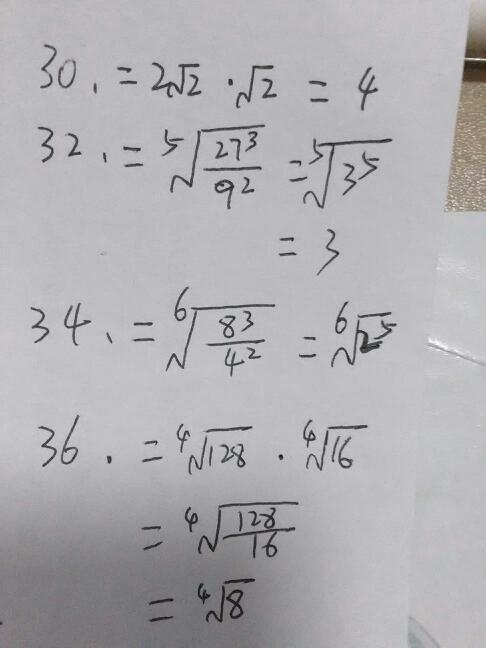 30. = 2√2 · √2 = 4
32. = ⁵√(27³/9²) = ⁵√3⁵
= 3
34. = ⁶√(8³/4²) = ⁶√2⁵
36. = ⁴√128 · ⁴√16
= ⁴√(128/16)
= ⁴√8